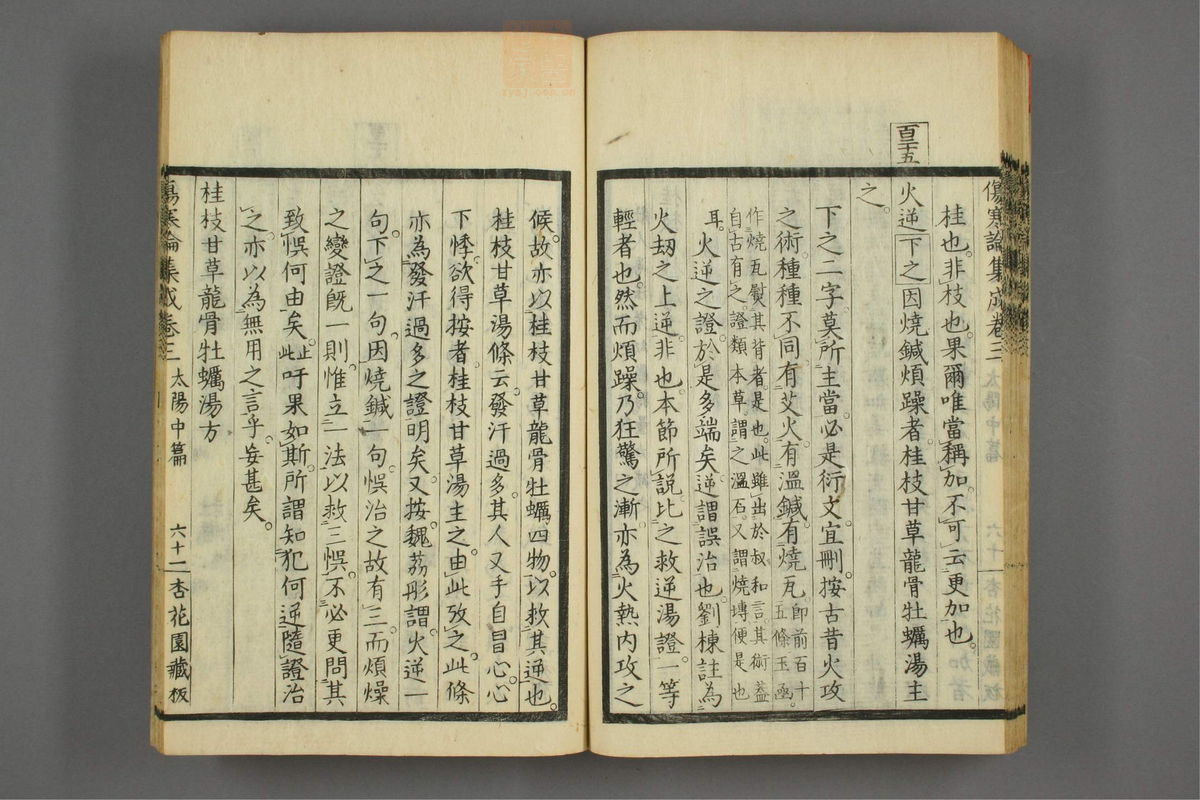 傷寒論集成卷三
桂也。非枝也。果爾唯當稱加。不可云更加也。
百二十五
火逆下之因燒鍼煩躁者。桂枝甘草龍骨牡蠣湯主
之。
下之二字。莫所主當。必是衍文。宜刪。按古昔火攻
之術。種種不同。有艾火。有溫鍼。有燒瓦。即前百十
五條玉函
作燒瓦熨其背者。是也。此雖出於叔和言。其術蓋
自古有之。證類本草謂之溫石。又謂燒塼便是也
耳。火逆之證。於是多端矣。逆謂誤治也。劉棟註為
火劫之上逆。非也。本節所說。比之救逆湯證。一等
輕者也。然而煩躁。乃狂驚之漸。亦為火熱內攻之
候。故亦以桂枝甘草龍骨牡蠣四物。以救其逆也。
桂枝甘草湯條云。發汗過多。其人叉手自冒心。心
下悸。欲得按者。桂枝甘草湯主之。由此攷之。此條
亦為發汗過多之證明矣。又按魏荔彤謂。火逆一
句。下之一句。因燒鍼一句。悞治之故有三。而煩燥
之變證旣一。則惟立一法。以救三悞。不必更問其
致悞何由矣。止此吁果如斯。所謂知犯何逆。隨證治
之。亦以為無用之言乎。妄甚矣。
桂枝甘草龍骨牡蠣湯方
傷寒論集成卷三 太陽中篇 六十二 杏花園藏板